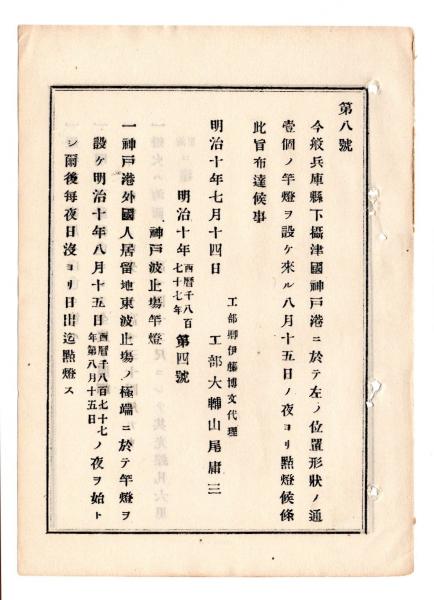 第八號
今般兵庫縣下攝津國神戸港ニ於テ左ノ位置形狀ノ通
壹個ノ竿燈ヲ設ケ來ル八月十五日ノ夜ヨリ點燈候條
此旨布達候事
明治十年七月十四日
工部卿伊藤博文代理
工部大輔山尾庸三
明治十年西暦千八百七十七年第四號
神戸波止塲竿燈
一神戸港外國人居留地東波止塲ノ極端ニ於テ竿燈ヲ
設ケ明治十年八月十五日西暦千八百七十七年第八月十五日ノ夜ヲ始ト
シ爾後每夜日沒ヨリ日出迄點燈ス